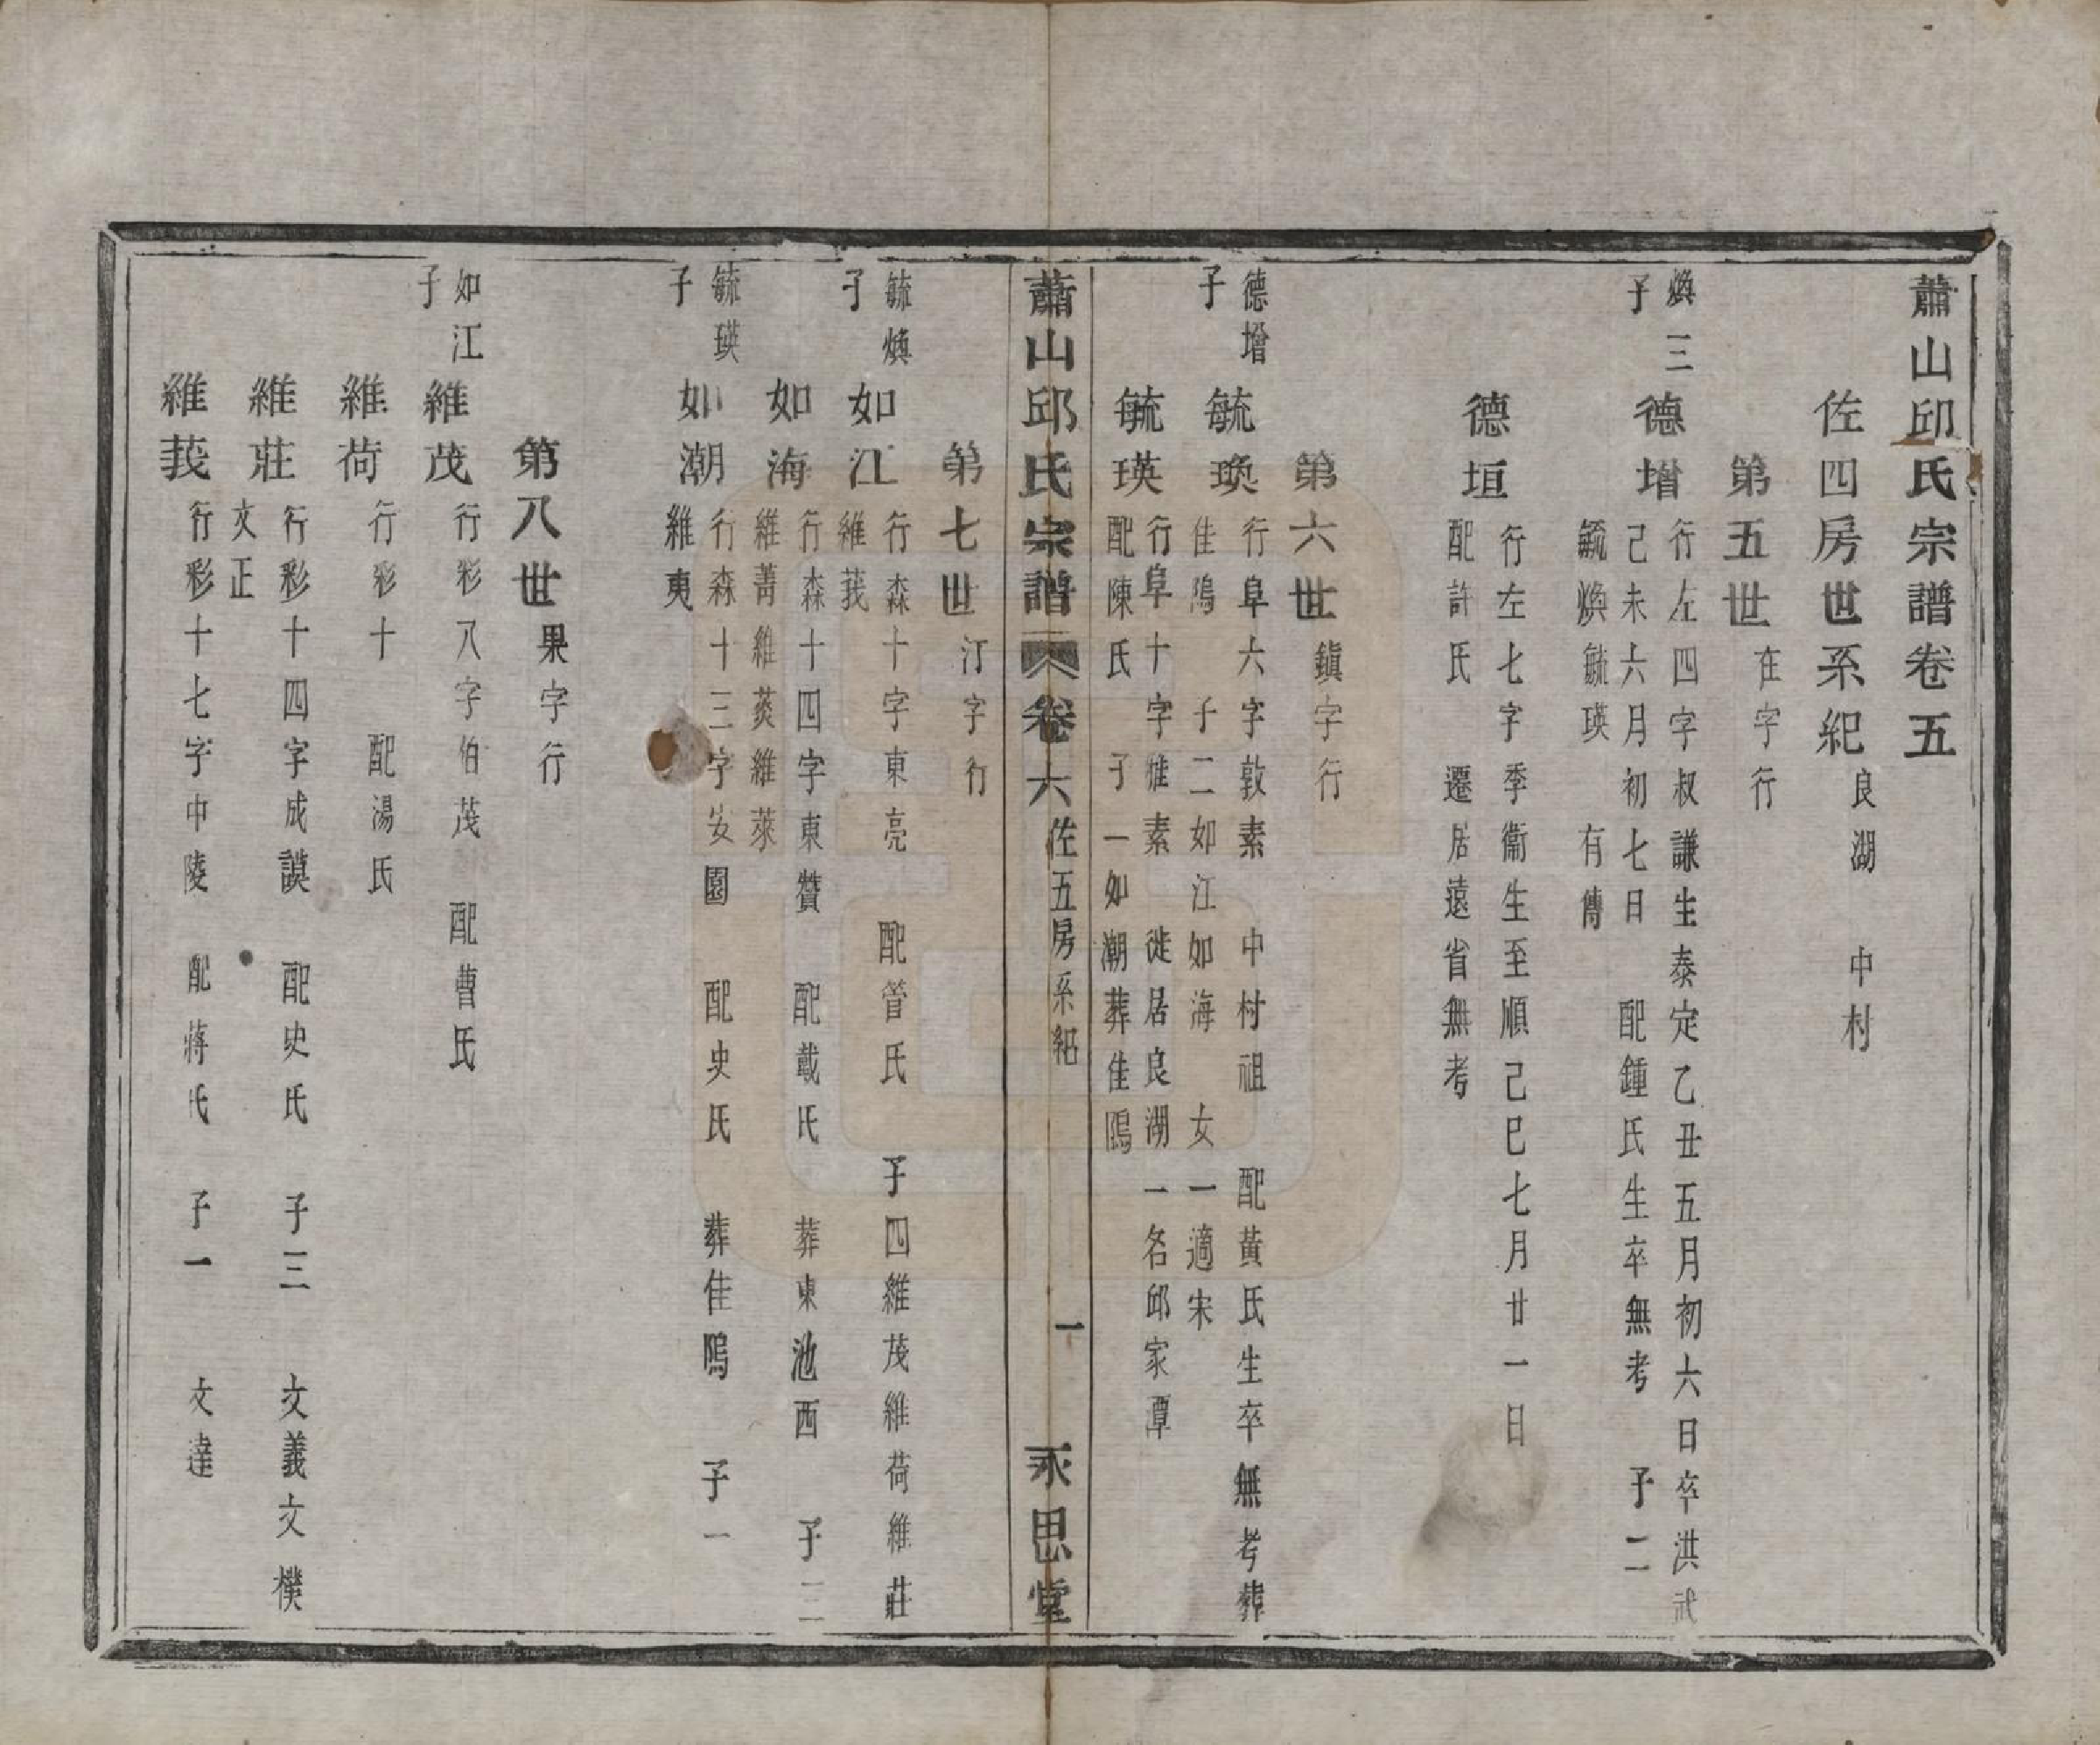 蕭山邱氏宗譜卷五
佐四房世系紀 良湖 中村
第五世 在字行
煥三子
德增 行左四字叔謙生泰定乙丑五月初六日卒洪武
己未六月初七日 配鍾氏生卒無考 子二
毓煥毓瑛 有傳
德垣 行左七字季衞生至順己巳七月廿一日
配許氏 遷居遠省無考
第六世 鎮字行
德增子
毓煥 行阜六字敦素 中村祖 配黃氏生卒無考葬
佳隖 子二如江如海 女一適宋
毓瑛 行阜十字雅素 徙居良湖一名邱家潭
配陳氏 子一如潮葬佳隖
蕭山邱氏宗譜 卷六 佐五房系紀 一 永思堂
第七世 汀字行
毓煥子
如江 行森十字東亮 配管氏 子四維茂維荷維莊
維莪
如海 行森十四字東贊 配戴氏 葬東池西 子二
維菁維菼維萊
毓瑛子
如潮 行森十三字安園 配史氏 葬佳隖 子一
維夷
第八世 果字行
如江子
維茂 行彩八字伯茂 配曹氏
維荷 行彩十 配湯氏
維莊 行彩十四字成謨 配史氏 子三 文義文樸
文正
維莪 行彩十七字中陵 配蔣氏 子一 文達